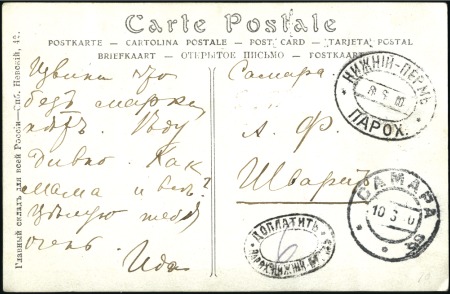 Carte Postale
POSTKARTE – CARTOLINA POSTALE – POST CARD – TARJETA POSTAL
BRIEFKAART – ОТКРЫТОЕ ПИСЬМО – POSTKAART
Главный складъ для всей Россіи—Спб. Невскій, 42.
что
безъ марки
нѣтъ. Ѣду
дивно. Какъ
мама и
Цѣлую тебя
очень.
Ида
Самара.
А. Ф.
Шварцъ
НИЖНІЙ-ПЕРМЬ
ПАРОХ.
ДОПЛАТИТЬ
6
САМАРА